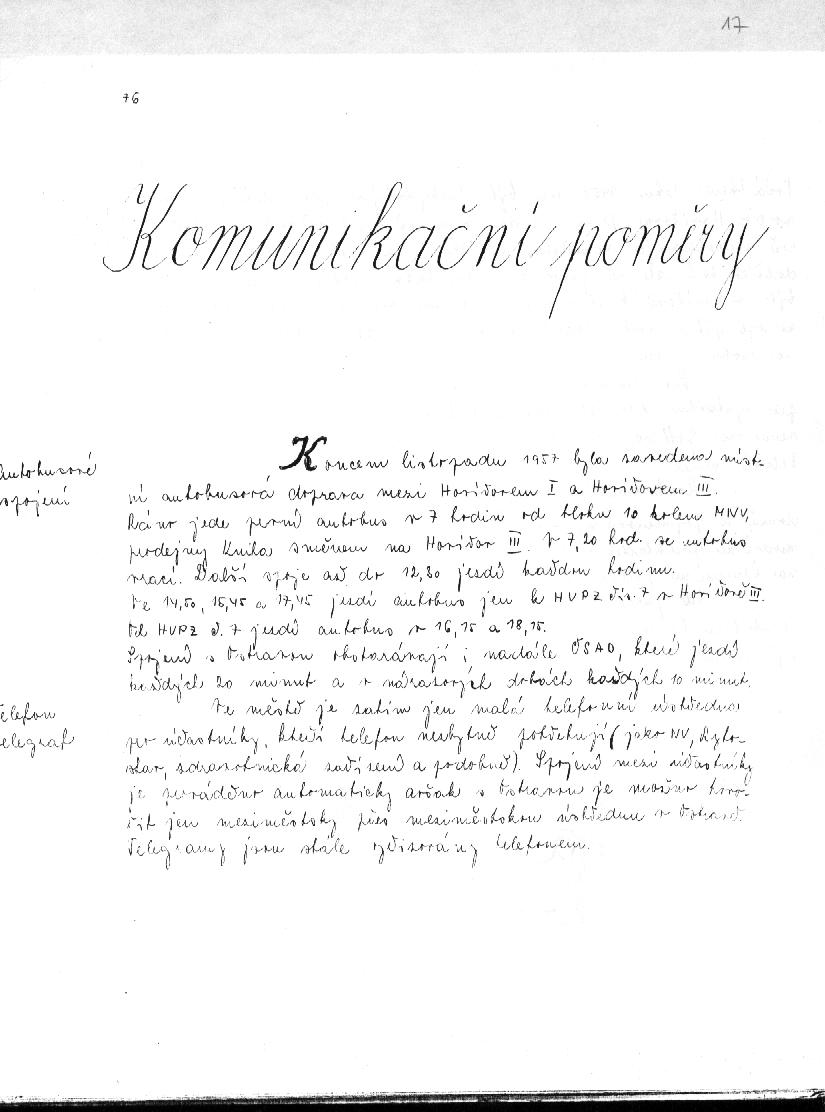 17
76
Komunikační poměry
autobusové
spojení
Koncem listopadu 1957 byla zavedena míst-
ní autobusová doprava mezi Havířovem I a Havířovem III.
Ráno jede první autobus v 7 hodin od bloku 10 kolem MNV,
prodejny Kniha směrem na Havířov III. V 7,20 hod. se autobus
vrací. Další spoje až do 12,30 jezdí každou hodinu.
Ve 14,50, 15,45 a 17,45 jezdí autobus jen k HVPZ čís. 7 v Havířově III.
Od HVPZ č. 7 jezdí autobus v 16,15 a 18,15.
Spojení s Ostravou obstarávají i nadále ČSAD, které jezdí
každých 20 minut a v nárazových dobách každých 10 minut.
telefon
telegraf
Ve městě je zatím jen malá telefonní ústředna
pro účastníky, kteří telefon nezbytně potřebují (jako NV, Byto-
stav, zdravotnická zařízení a podobně). Spojení mezi účastníky
je prováděno automaticky avšak s Ostravou je možno hovo-
řit jen meziměstsky přes meziměstskou ústřednu v Ostravě.
Telegramy jsou stále vyřizovány telefonem.